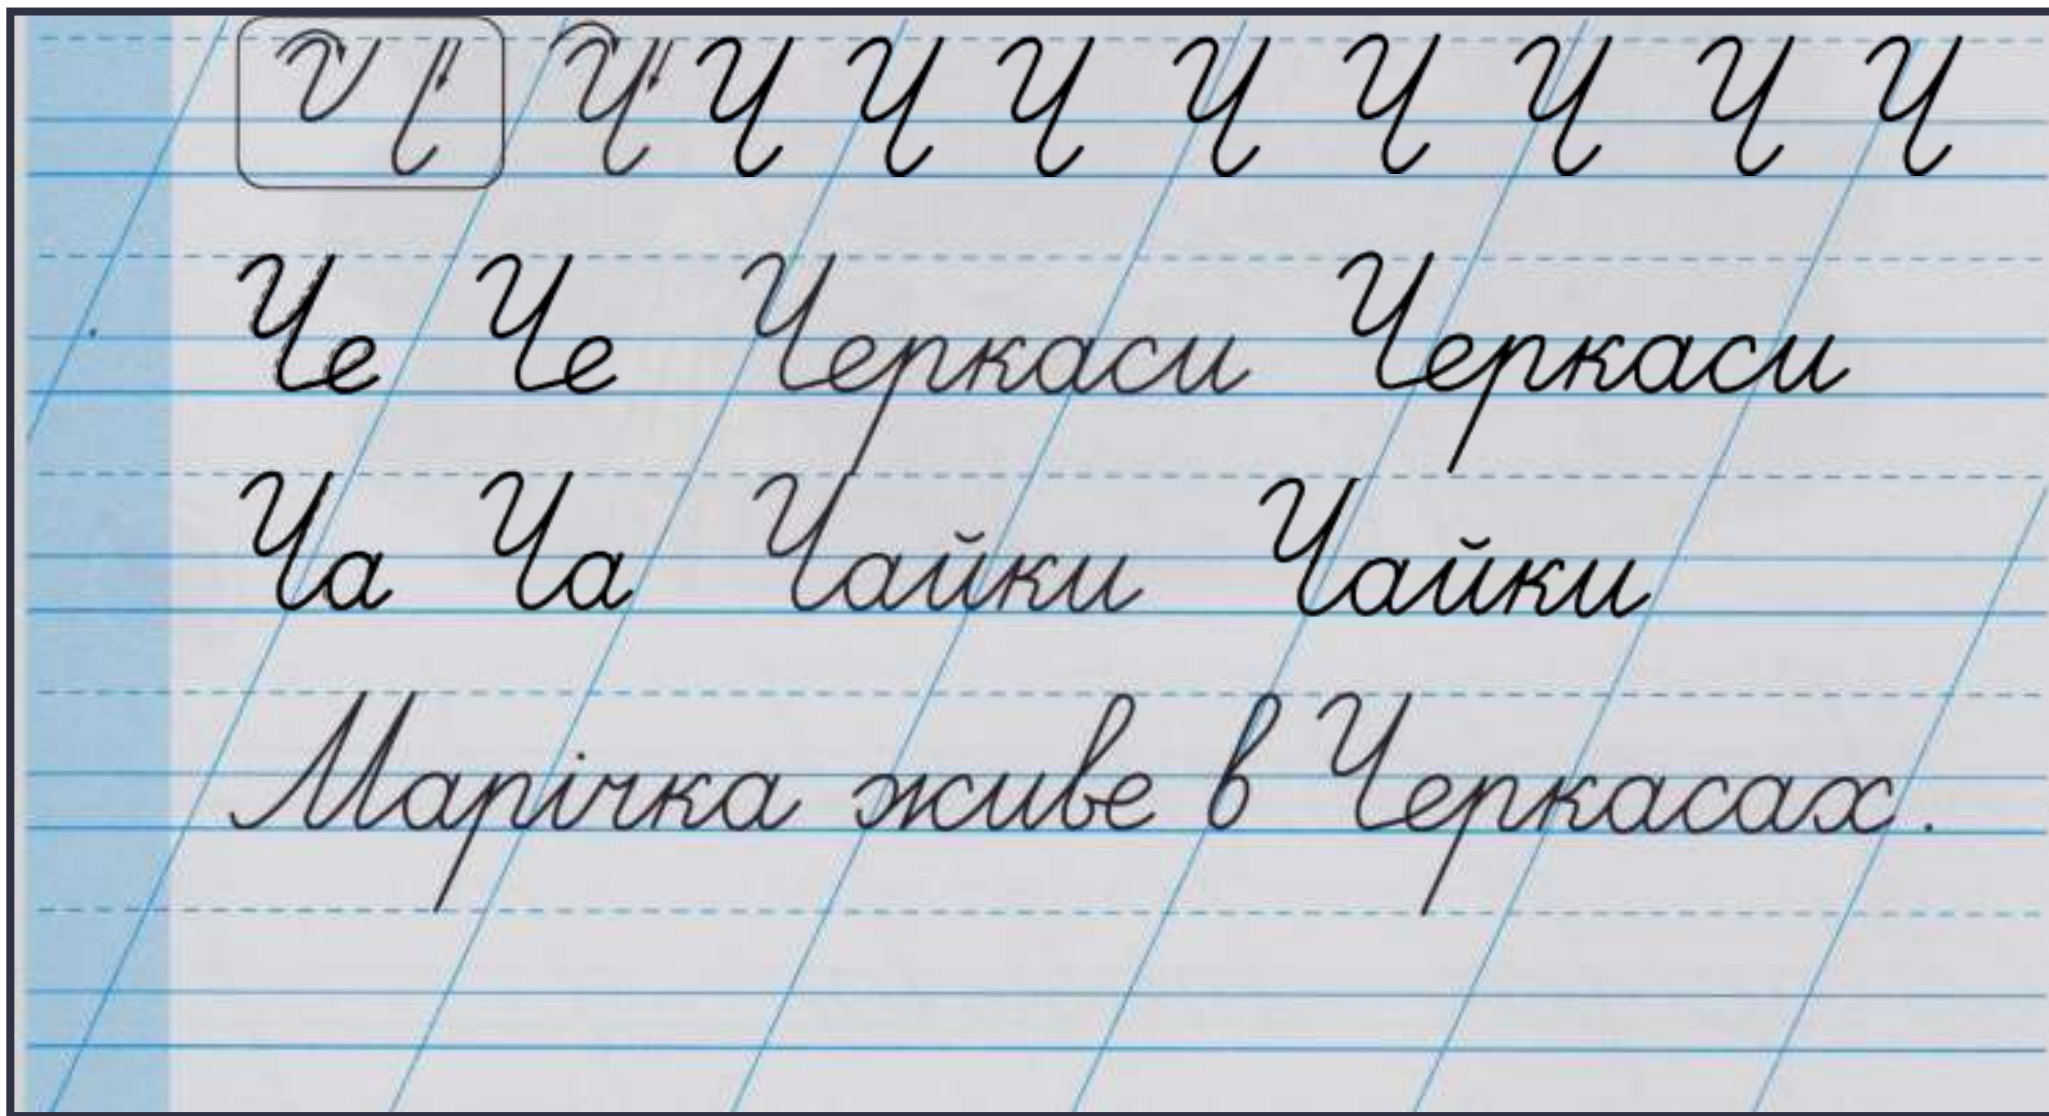 Ч Ч Ч Ч Ч Ч Ч Ч Ч
Че Че Черкаси Черкаси
Ча Ча Чайки Чайки
Марічка живе в Черкасах.